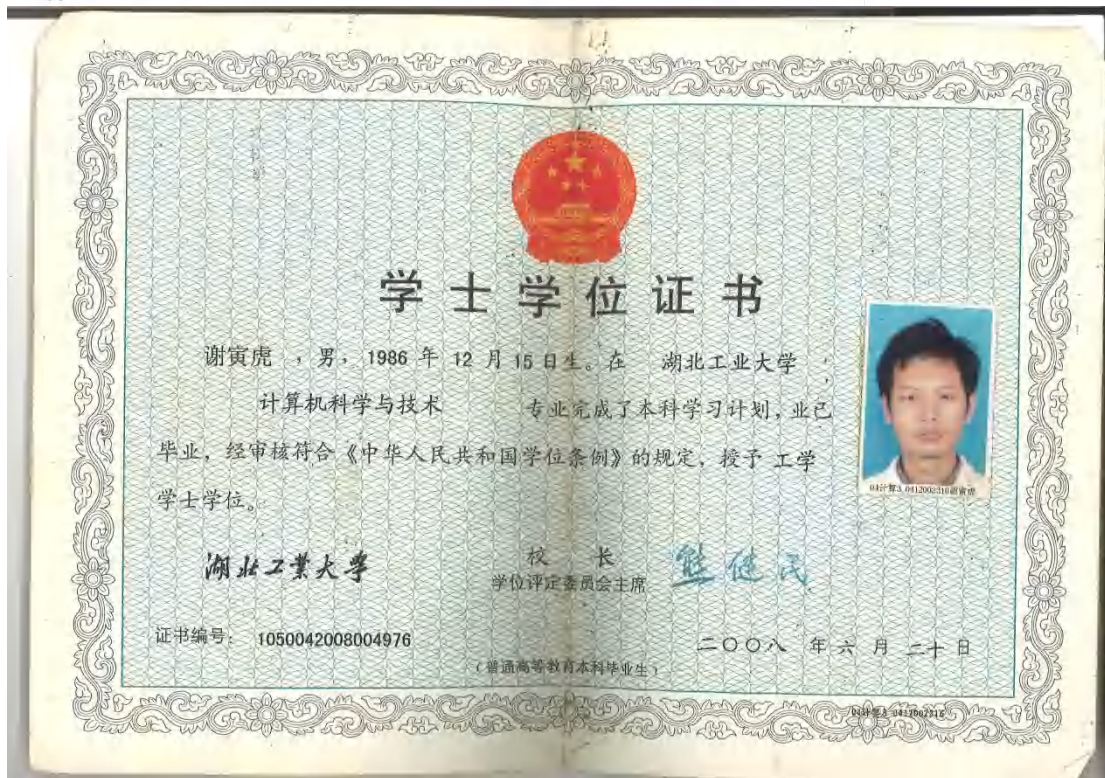 学士学位证书
谢寅虎 ，男，1986 年 12 月 15 日生。在 湖北工业大学 ，
计算机科学与技术 专业完成了本科学习计划，业已
毕业，经审核符合《中华人民共和国学位条例》的规定，授予 工学
学士学位。
04计算3 0412002316谢寅虎
湖北工業大學
校 长
学位评定委员会主席
熊健民
证书编号： 1050042008004976
二〇〇八 年 六 月 二十 日
（普通高等教育本科毕业生）
04计算3 0412002316